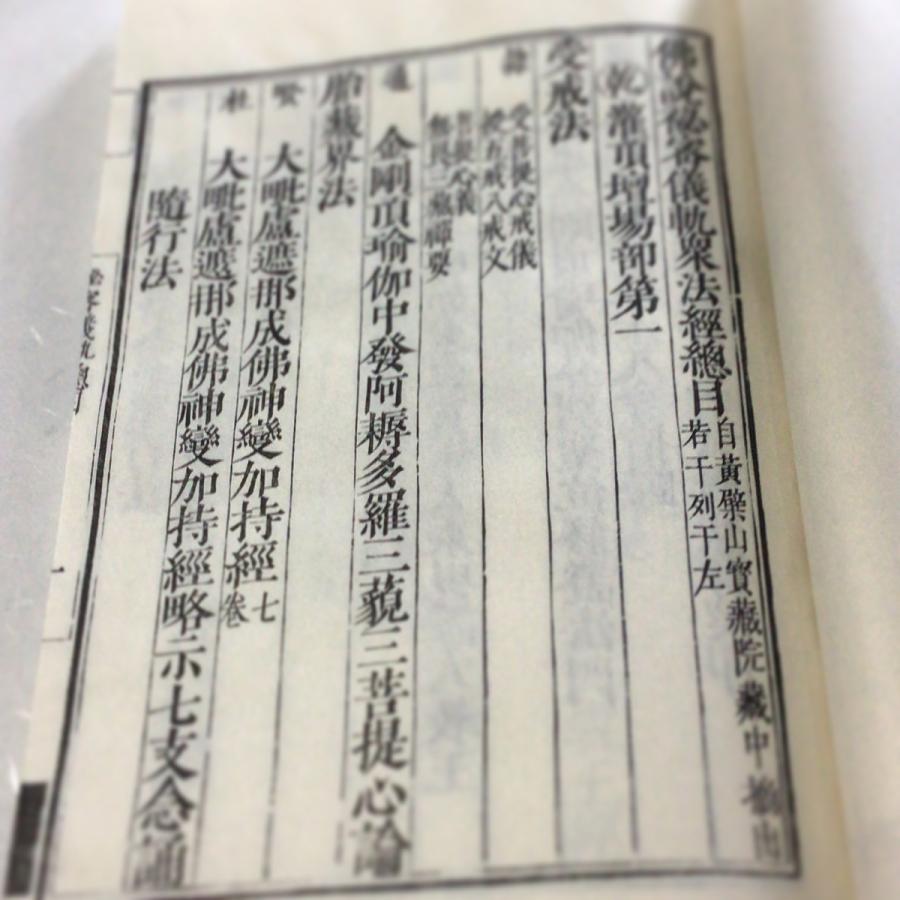 佛說秘密儀軌眾法經總目 自黃檗山寶藏院藏中摺出
若干列于左
乾 灌頂壇場部第一
受戒法
受菩提心戒儀
授五戒八戒文
菩提心義
無畏三藏禪要
金剛頂瑜伽中發阿耨多羅三藐三菩提心論
胎藏界法
大毗盧遮那成佛神變加持經 七卷
大毗盧遮那成佛神變加持經略示七支念誦
隨行法